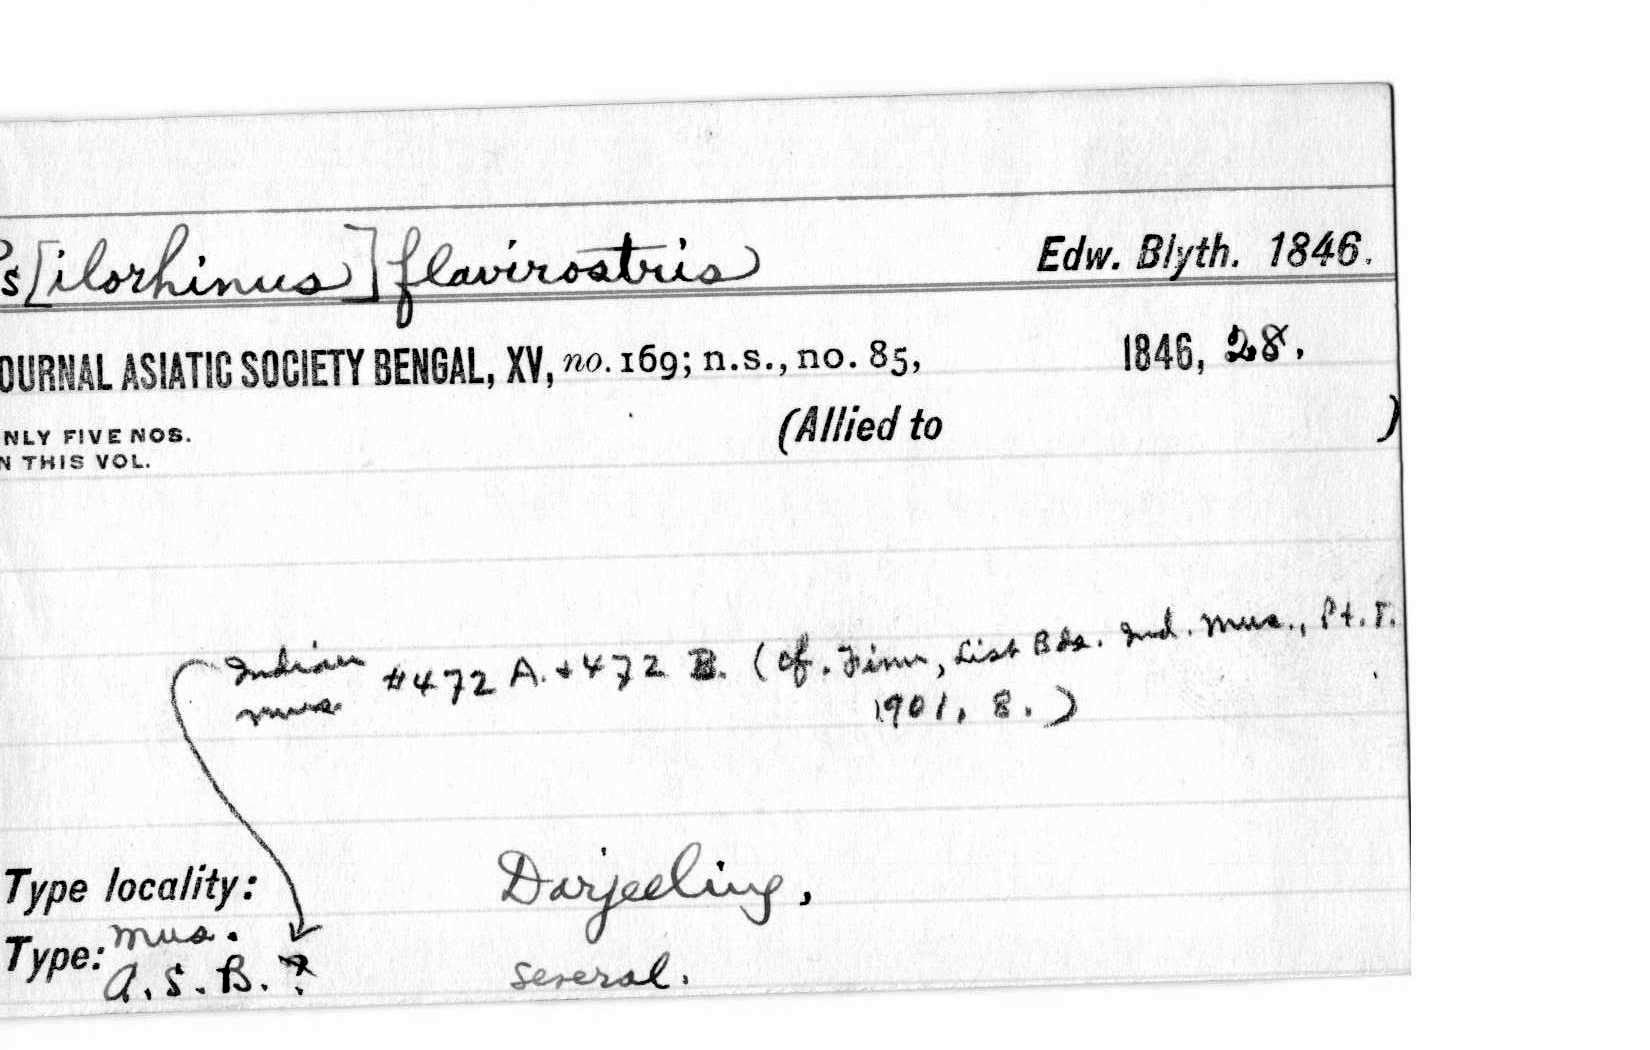 Ps[ilorhinus] flavirostris Edw. Blyth. 1846.
OURNAL ASIATIC SOCIETY BENGAL, XV, no. 169; n.s., no. 85, 1846, 28.
NLY FIVE NOS. (Allied to )
N THIS VOL.
Indian #472 A. + 472 B. (cf. Finn, List Bds. Ind. Mus., Pt. I.
Mus. 1901, 8.)
Type locality: Darjeeling,
Type: Mus.
A.S.B. ? several.